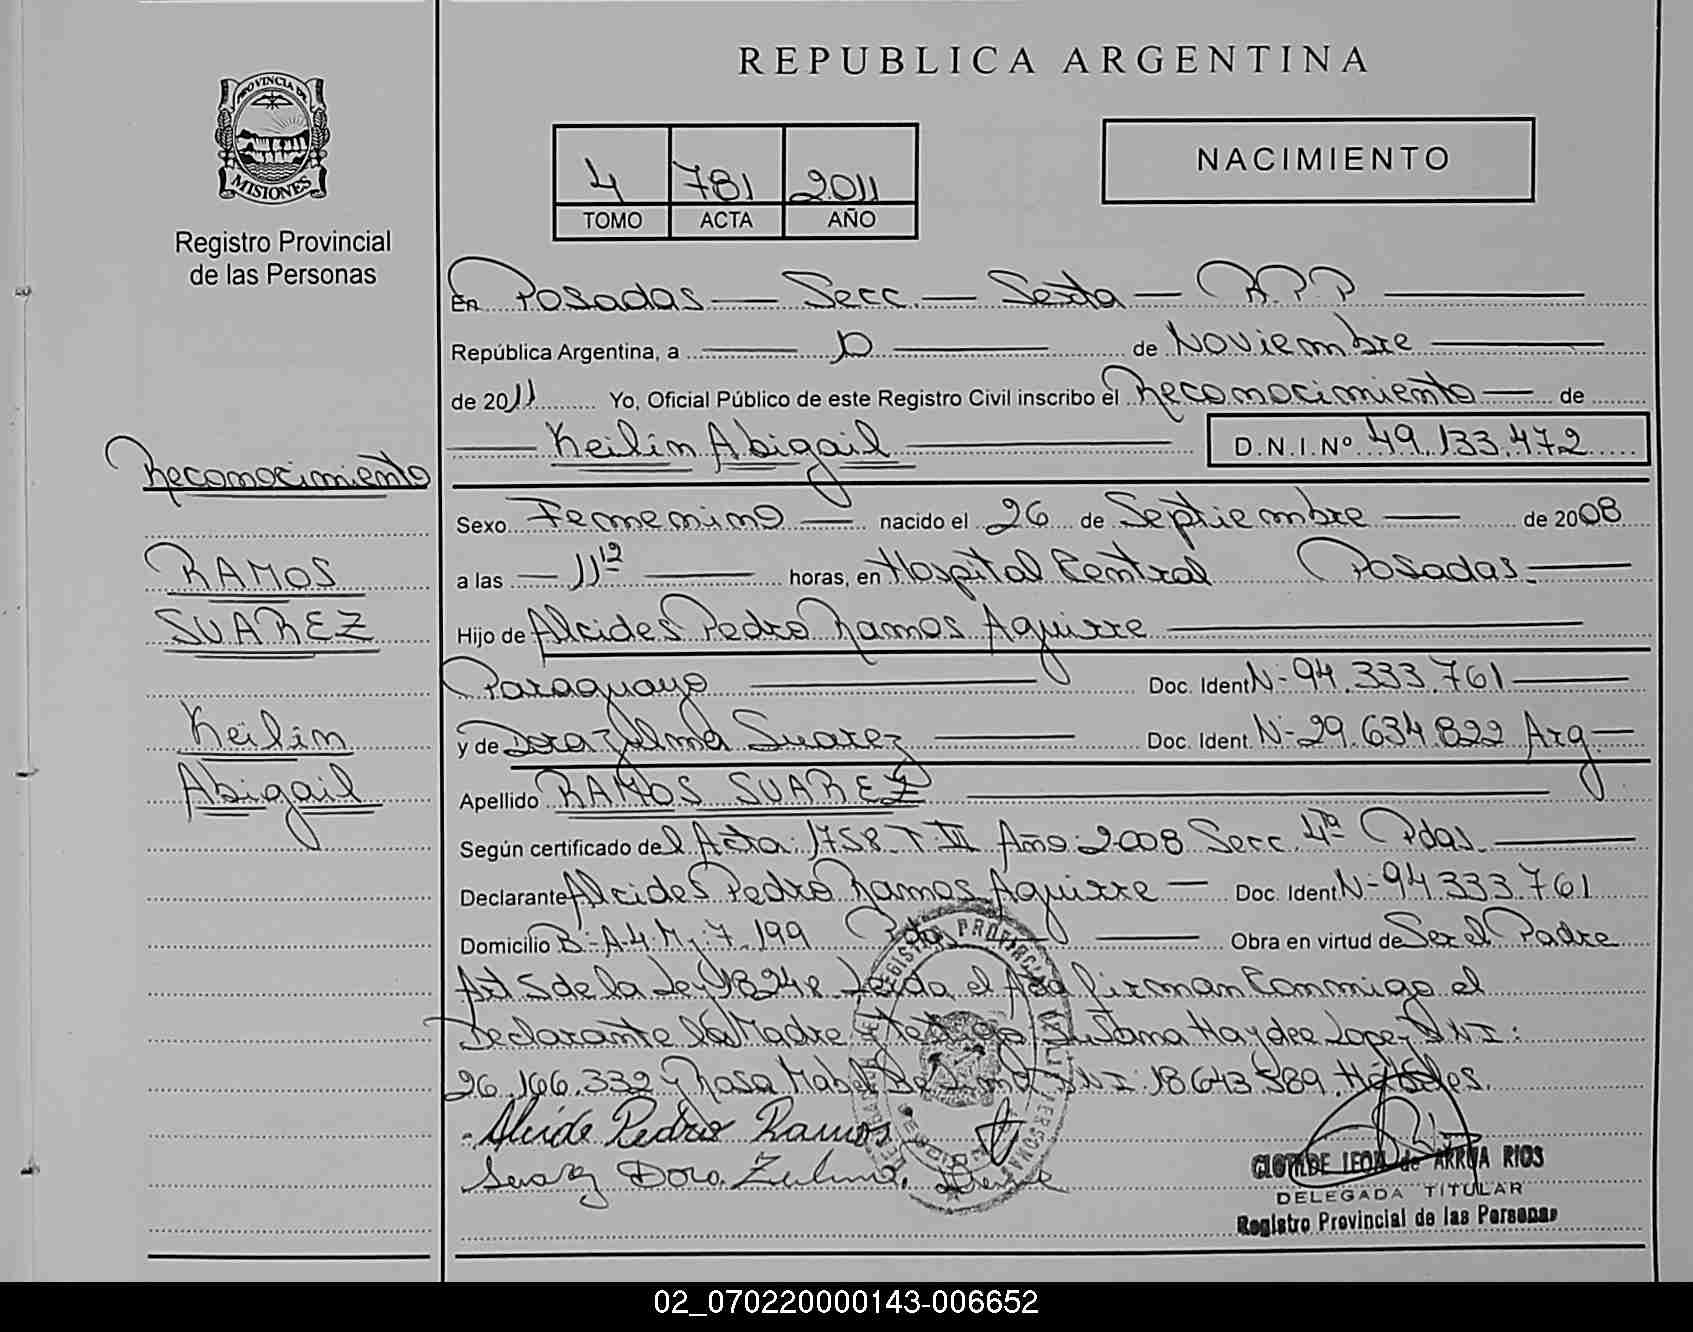 REPUBLICA ARGENTINA
PROVINCIA DE
MISIONES
Registro Provincial
de las Personas
4 781 2011
TOMO ACTA AÑO
NACIMIENTO
En Posadas — Secc. — Sexta — R.P.P
República Argentina, a 10 de Noviembre
de 2011 Yo, Oficial Público de este Registro Civil inscribo el Reconocimiento — de
Keilin Abigail D.N.I.Nº 49.133.472
Reconocimiento
RAMOS
SUAREZ
Keilin
Abigail
Sexo Femenino — nacido el 26 de Septiembre — de 2008
a las — 11 12 — horas, en Hospital Central Posadas.
Hijo de Alcides Pedro Ramos Aguirre
Paraguayo Doc. Ident. N- 94.333.761
y de Dora Zulma Suarez Doc. Ident. N- 29.634.822 Arg
Apellido RAMOS SUAREZ
Según certificado del Acta: 1758 T III Año: 2008 Secc. 4ta Pdas.
Declarante Alcides Pedro Ramos Aguirre — Doc. Ident. N- 94.333.761
Domicilio B- A-4. M. 7. 199 Pdas Obra en virtud de Ser el Padre
Art 5 de la Ley 18248. Leida el Acta firman Conmigo el
Declarante la Madre y testigos Susana Haydee Lopez D.N.I:
26.166.332 y Rosa Mabel De Lima D.N.I: 18643589. Habiles.
Alcide Pedro Ramos
Suarez Dora Zulma.
CLOTILDE LEON de ARRUA RIOS
DELEGADA TITULAR
Registro Provincial de las Personas
02_070220000143-006652